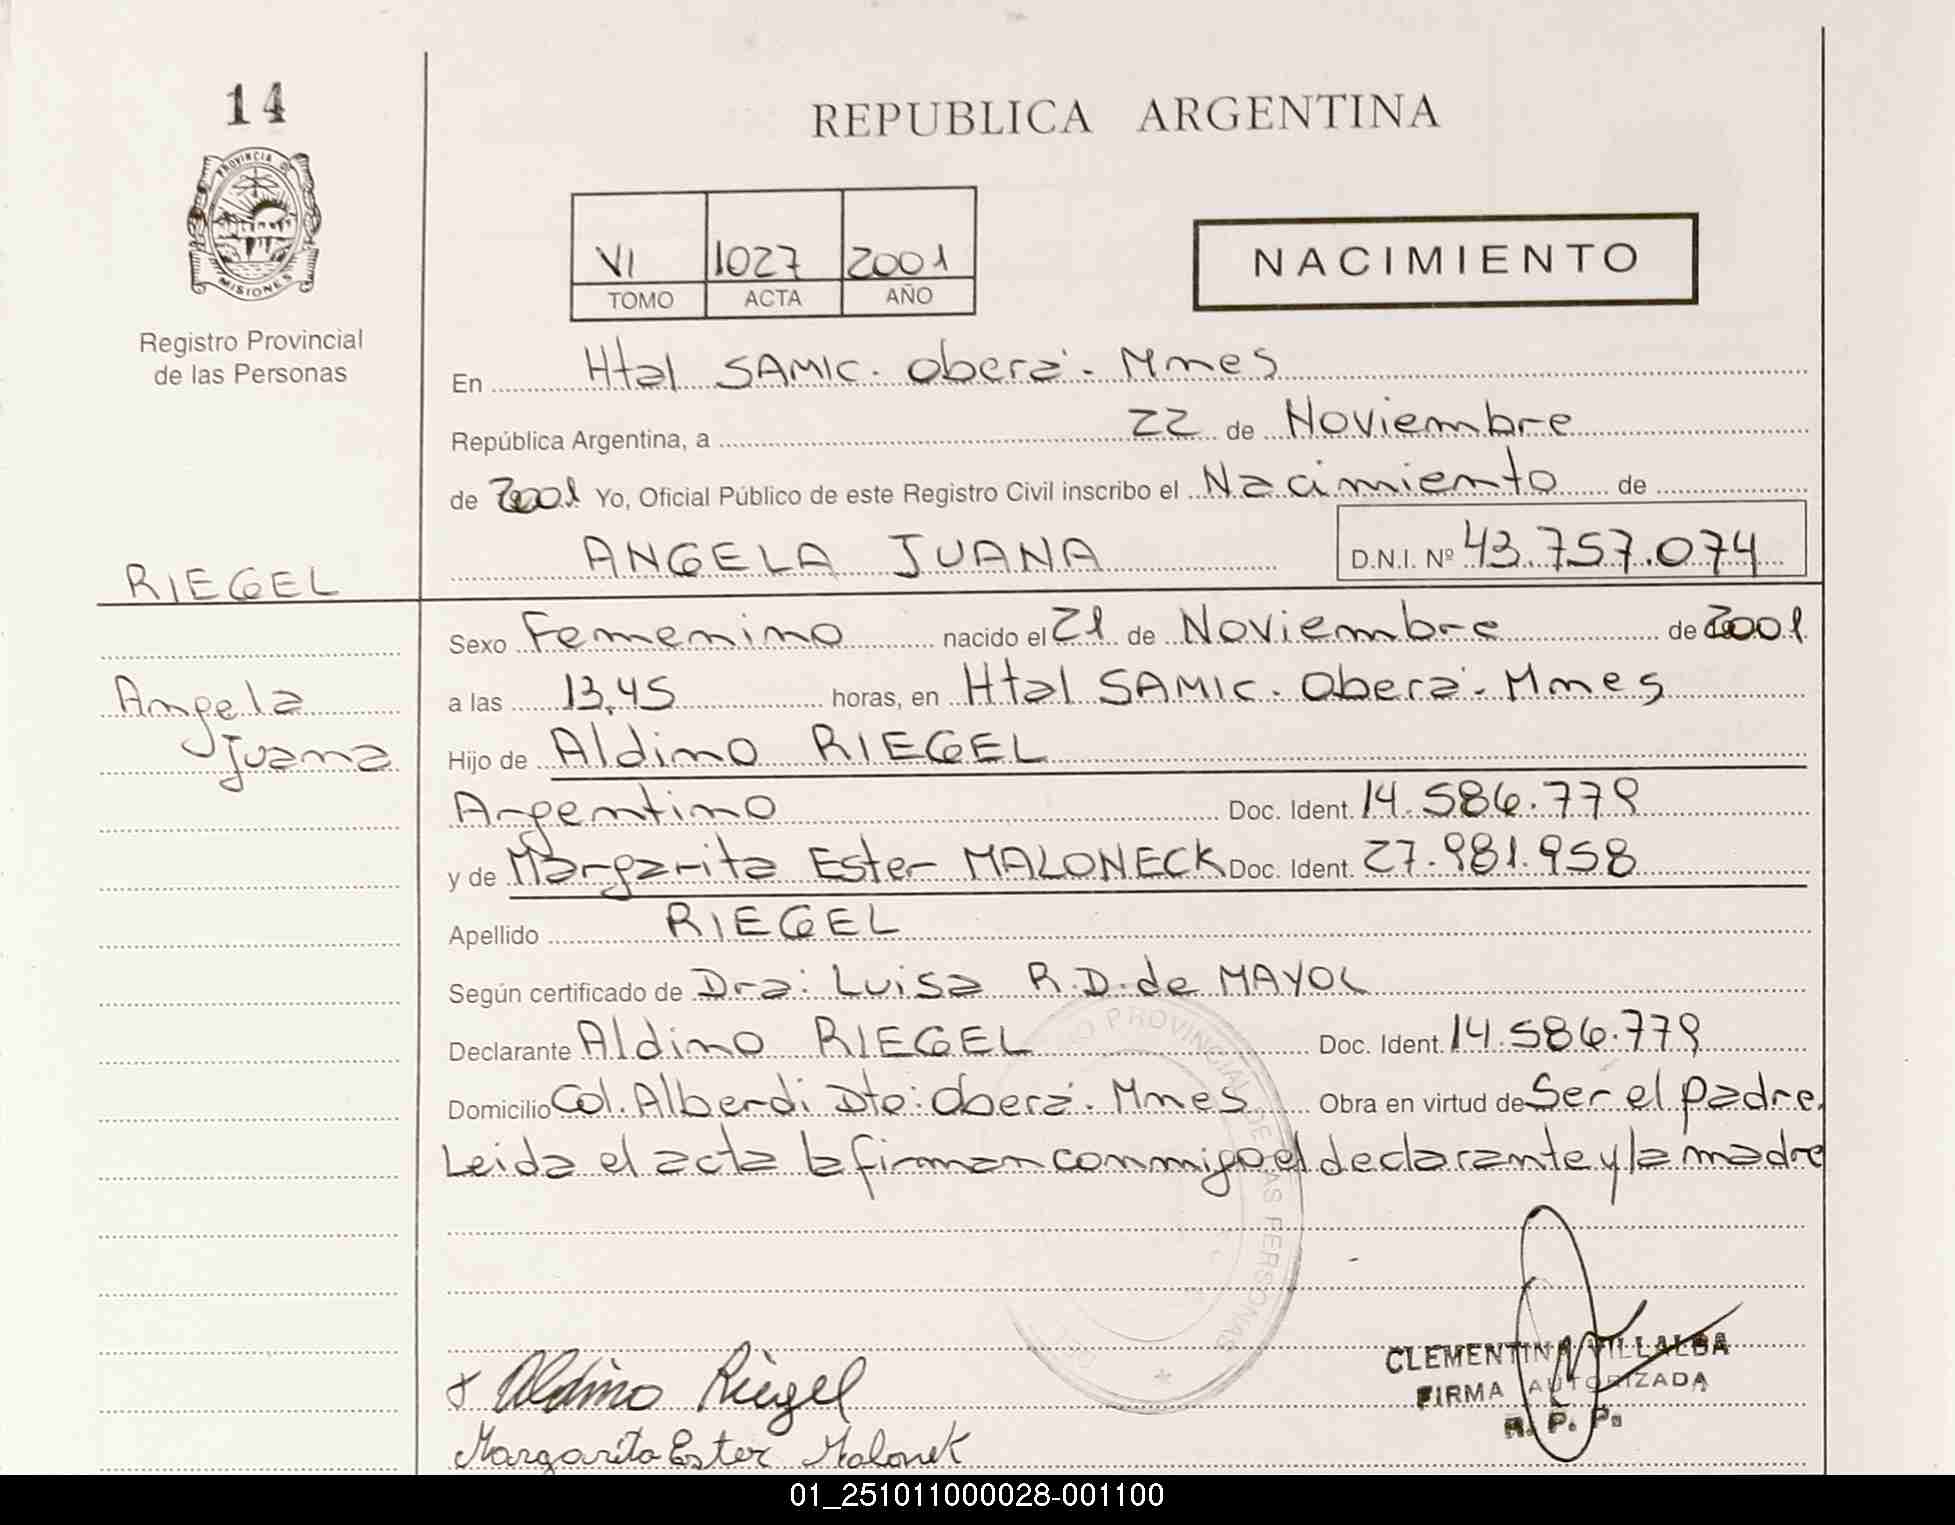 14
PROVINCIA D
MISIONES
Registro Provincial
de las Personas
REPUBLICA ARGENTINA
VI 1027 2001
TOMO ACTA AÑO
NACIMIENTO
En Htal SAMIC. Oberá. Mnes
República Argentina, a 22 de Noviembre
de 2001 Yo, Oficial Público de este Registro Civil inscribo el Nacimiento de
ANGELA JUANA D.N.I. Nº 43.757.074
RIEGEL
Angela
Juana
Sexo Femenino nacido el 21 de Noviembre de 2001
a las 13,45 horas, en Htal SAMIC. Oberá. Mnes
Hijo de Aldino RIEGEL
Argentino Doc. Ident. 14.586.779
y de Margarita Ester MALONECK Doc. Ident. 27.981.958
Apellido RIEGEL
Según certificado de Dra: Luisa R.D. de MAYOL
Declarante Aldino RIEGEL Doc. Ident. 14.586.779
Domicilio Col. Alberdi Dto: Oberá. Mnes Obra en virtud de Ser el padre.
Leida el acta la firman conmigo el declarante y la madre
PROVINCIAL DE LAS PERSONAS
Aldino Riegel
Margarita Ester Malonek
CLEMENTINA VILLALBA
FIRMA AUTORIZADA
R. P. P.
01_251011000028-001100